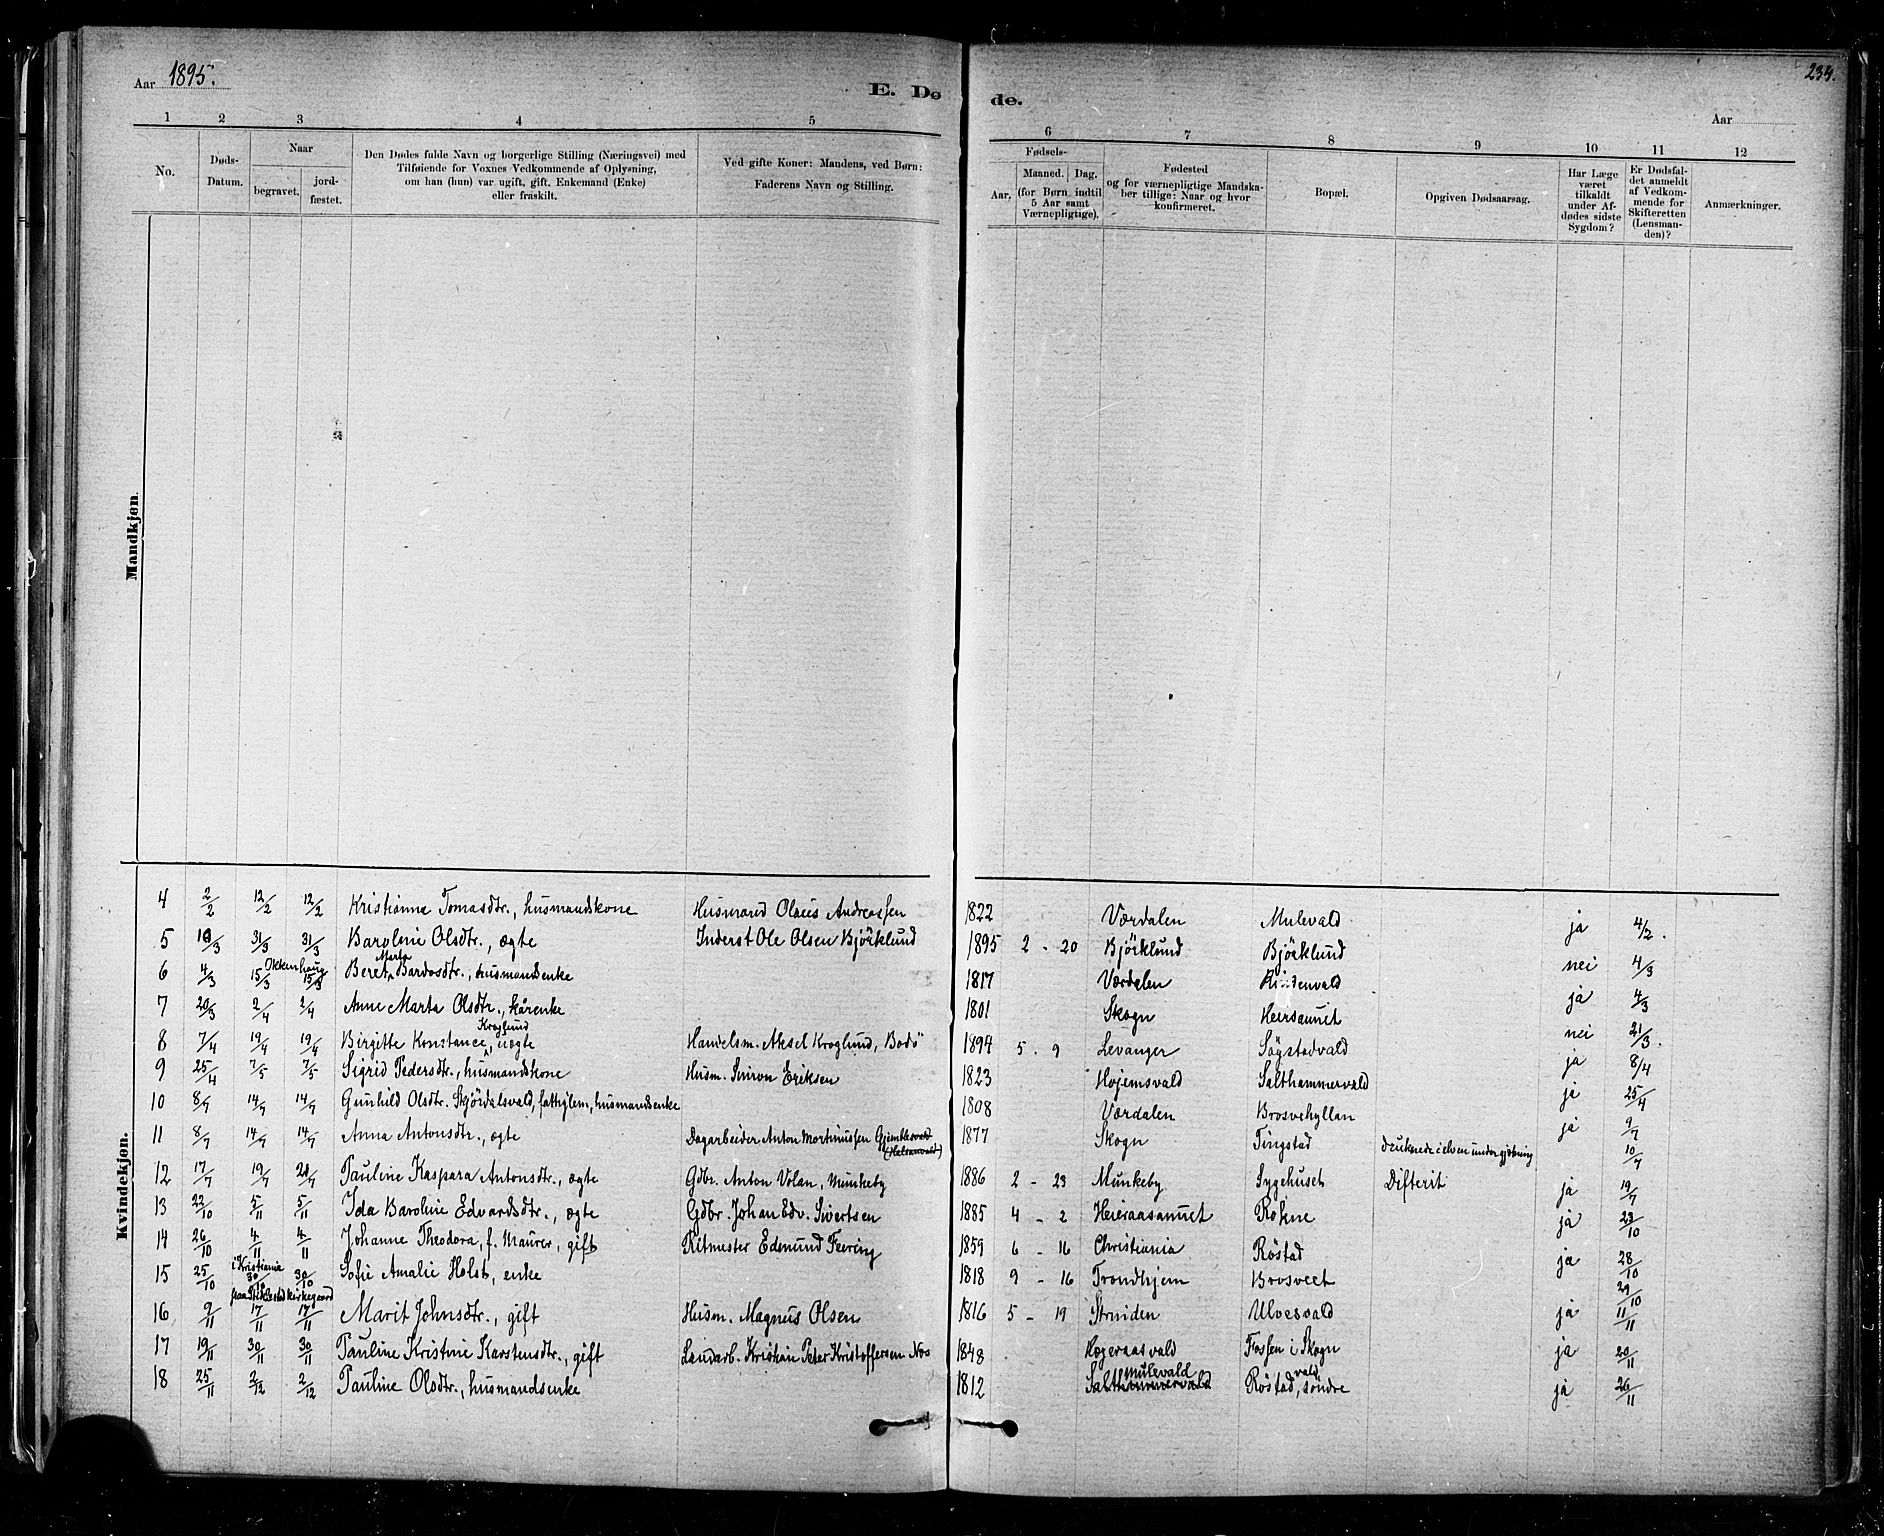 Aar 1895.
234.
E. Dø de.
Aar
1 2 3 4 5 6 7 8 9 10 11 12
No.
Døds-Datum.
Naar
begravet.
jordfæstet.
Den Dødes fulde Navn og borgerlige Stilling (Næringsvei) med
Tilføiende for Voxnes Vedkommende af Oplysning,
om han (hun) var ugift, gift, Enkemand (Enke)
eller fraskilt.
Ved gifte Koner: Mandens, ved Børn:
Faderens Navn og Stilling.
Fødsels-
Aar,
Maaned. Dag.
(for Børn indtil
5 Aar samt
Værnepligtige).
Fødested
og for værnepligtige Mandska-
ber tillige: Naar og hvor
konfirmeret.
Bopæl.
Opgiven Dødsaarsag.
Har Læge
været
tilkaldt
under Af-
dødes sidste
Sygdom?
Er Dødsfal-
det anmeldt
af Vedkom-
mende for
Skifteretten
(Lensman-
den)?
Anmærkninger.
Mandkjøn.
Kvindekjøn.
4 2/2 12/2 12/2 Kristianna Tomasdtr., husmandskone Husmand Olaus Andreassen 1822 Værdalen Mulevald ja 4/2.
5 10/3 31/3 31/3 Baroline Olsdtr., ægte Inderst Ole Olsen Bjørklund 1895 2 - 20 Bjørklund Bjørklund nei 4/3
6 4/3 15/3 15/3 Okkenhaug Beret Marta Bardosdtr., husmandsenke 1817 Værdalen ja 4/3
7 20/3 2/4 2/4 Anne Marta Olsdtr., kårenke 1801 Skogn Heirsaunet nei 21/3.
8 7/4 19/4 19/4 Birgitte Konstance Kroglund, uægte Handelsm. Aksel Kroglund, Bodø 1894 5 - 9 Levanger Søgstadvald ja 8/4
9 25/4 7/5 7/5 Sigrid Pedersdtr., husmandskone Husm. Eriksen 1823 Højemsvald Salthammervald ja 25/4
10 8/7 14/7 14/7 Gunhild Olsdtr. Skjørdalsvald, fattiglem, husmandsenke 1808 Værdalen Brosvehyllan ja 9/7
11 8/7 14/7 14/7 Anna Antonsdtr., ægte Dagarbeider Anton Mortinussen Gjemblesvald (Halsanvald) 1877 Skogn Tingstad druknede i elven under gjætning 10/7
12 17/7 19/7 21/7 Pauline Kaspara Antonsdtr., ægte Gdbr. Anton Volan, Munkeby 1886 2 - 23 Munkeby Sygehuset Difterit ja 19/7
13 22/10 5/11 5/11 Ida Baroline Edvardsdtr., ægte Gdbr. Johan Edv. Sivertsen 1885 4 - 2 Heieraasaunet Røkne ja 23/10
14 26/10 4/11 4/11 Johanne Theodora, f. Maurer, gift Ritmester Edmund Feering 1859 6 - 16 Christiania Røstad ja 28/10
15 25/10 i Kristiania 30/10 30/10 Sofie Amalie Holst, enke 1818 9 - 16 Trondhjem Brosveet 29/10
paa Stiklestad kirkegaard
16 9/11 17/11 17/11 Marit Johnsdtr., gift Husm. Magnus Olsen 1816 5 - 19 Strinden Ulvesvald ja 11/11
17 19/11 30/11 30/11 Pauline Kristine Karstensdtr., gift Landarb. Kristian Peter Kristoffersen Nos 1848 Hegeraasvald Fossen i Skogn ja 20/11
18 25/11 2/12 2/12 Pauline Olsdtr., husmandsenke 1812 Salthammervald mulevald Røstad vald, søndre ja 26/11